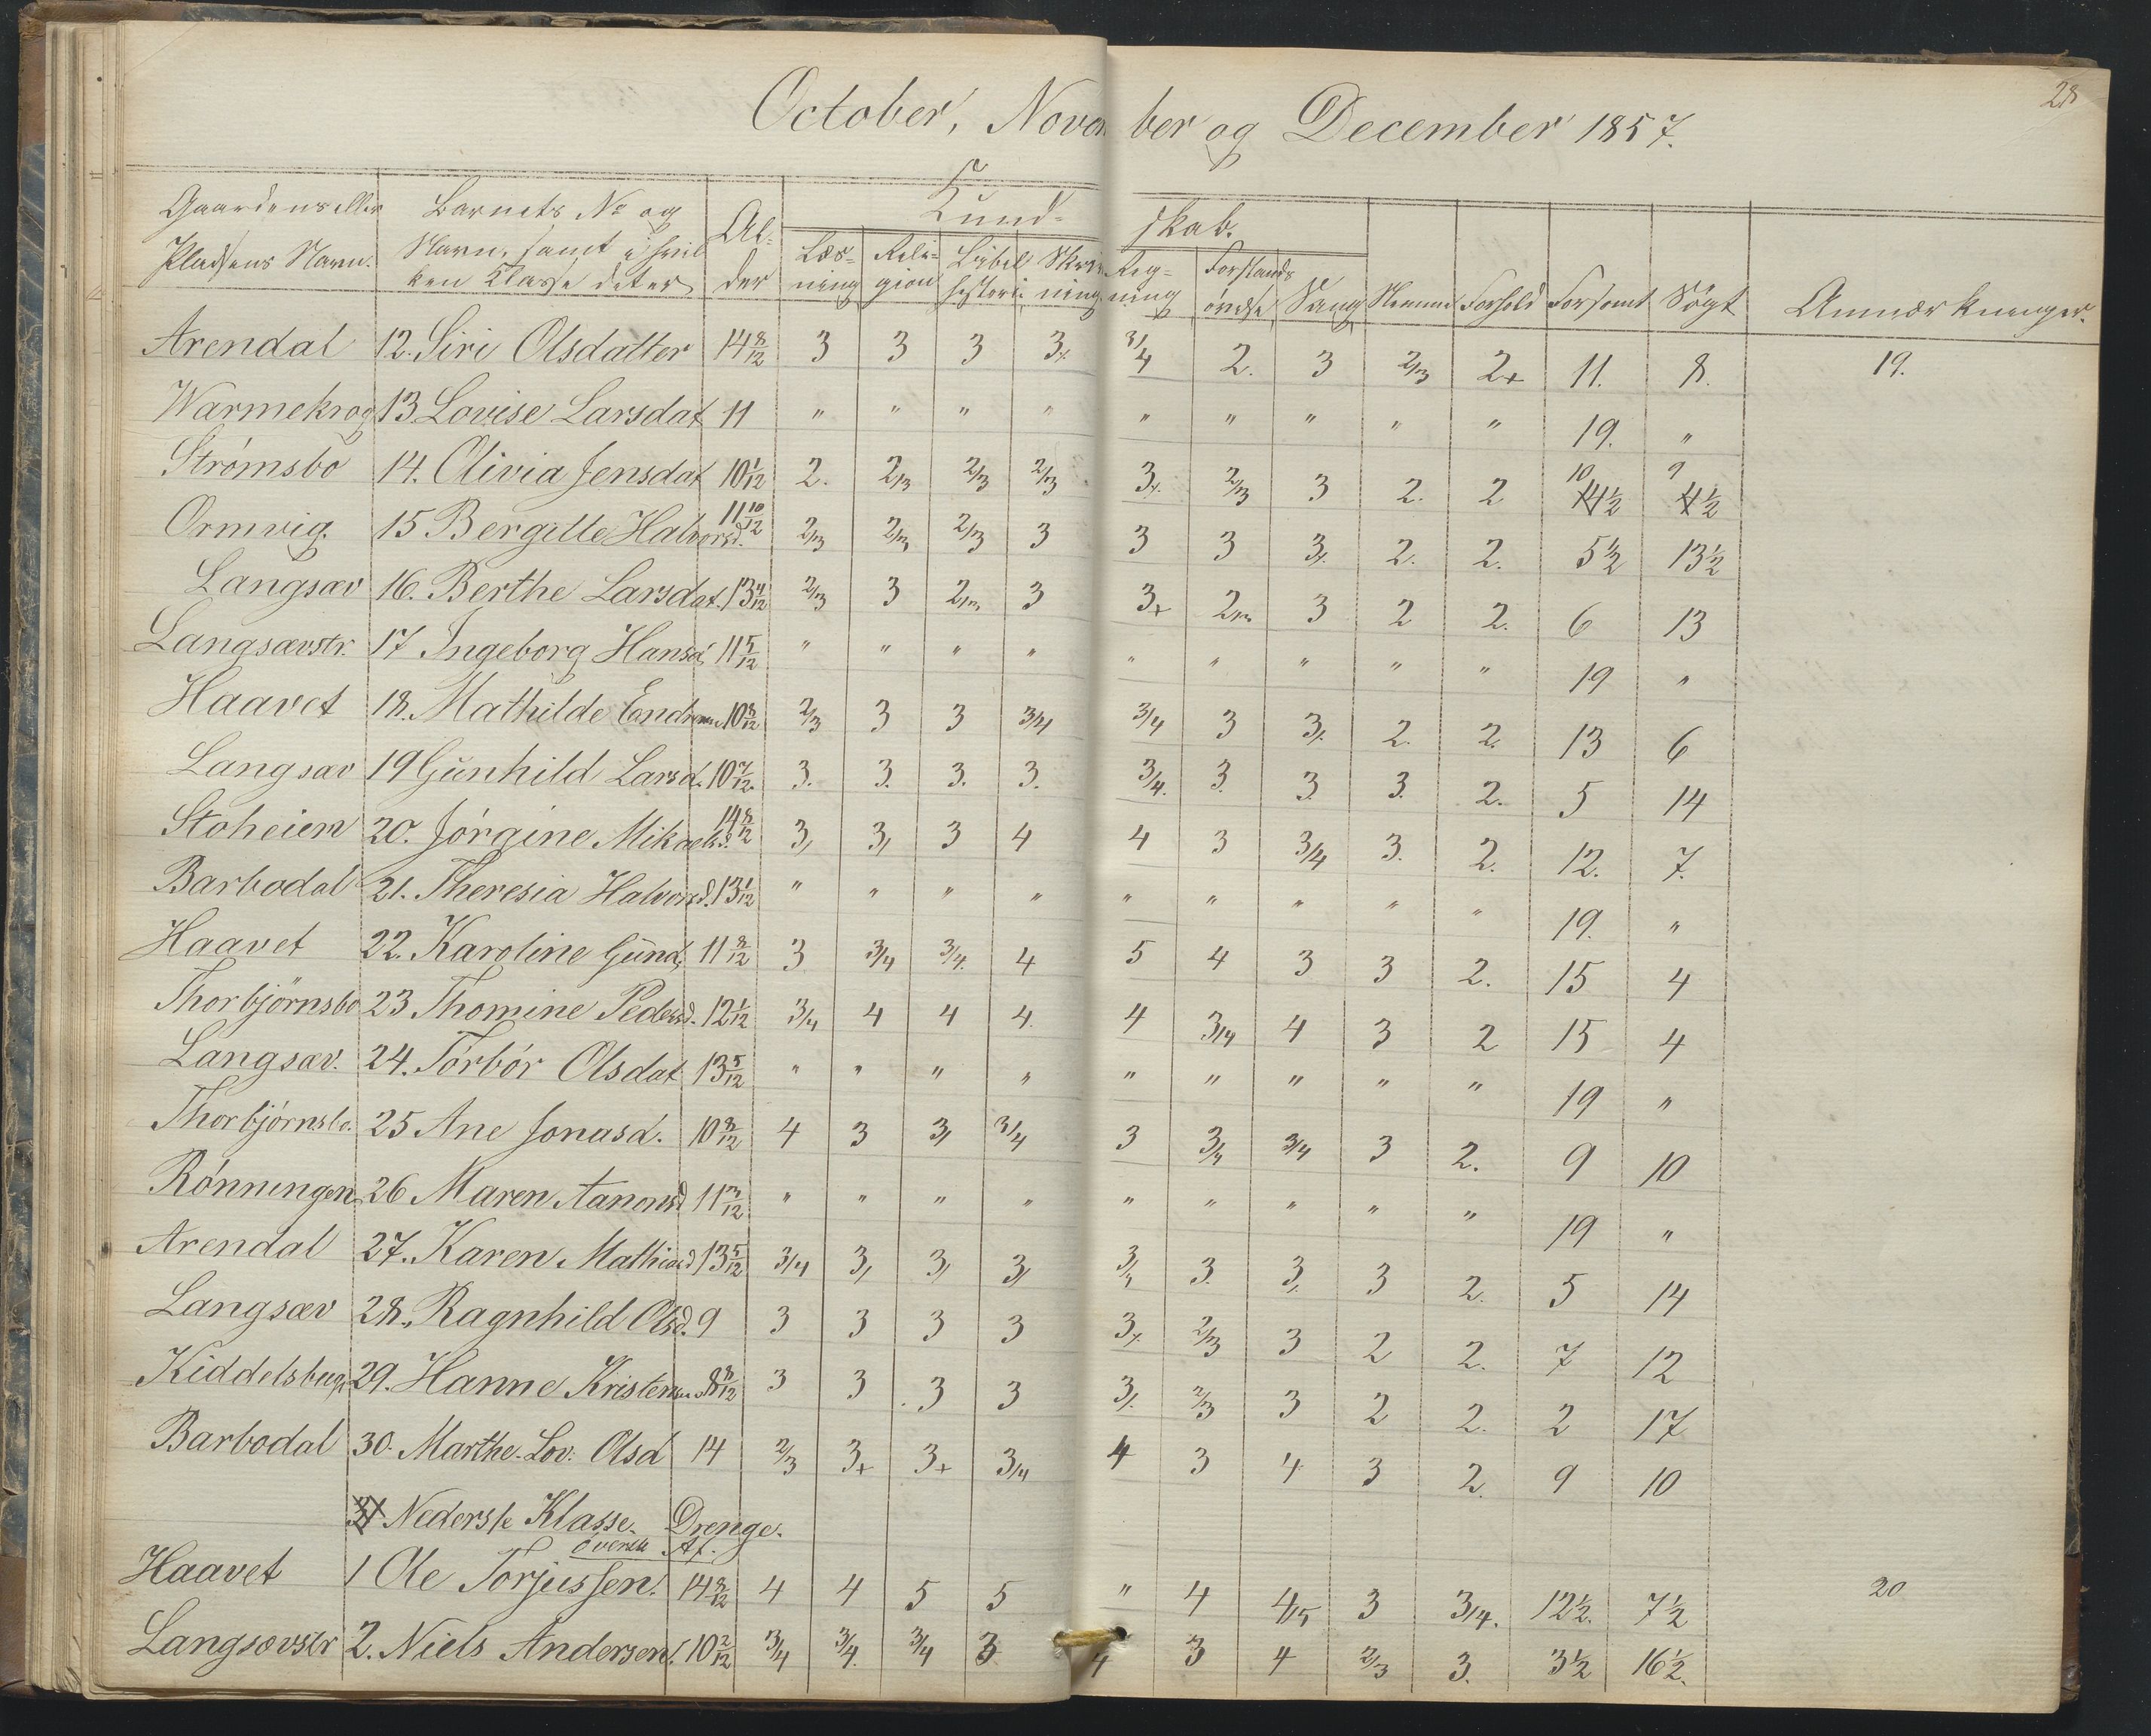 28
October, Novem ber og December 1857.
Gaardens eller Pladsens Navn. Barnets No og Navn, samt i hvil ken Klasse det er Al- der Kund- skab. Læs- ning Reli- gion Bibel historie Skriv- ning Reg- ning Forstands øvelse Sang Nemme Forhold Forsømt Søgt Anmærkninger.
Arendal 12. Siri Olsdatter 14 8/12 3 3 3 3x 3/4 2. 3 2/3 2+ 11. 8. 19.
Warmekrog 13 Lovise Larsdat 11 " " " " " " " " " 19. "
Strömsbo 14. Olivia Jensdat 10 1/12 2. 2/3 2/3 2/3 3x 2/3 3 2. 2 10 1/2 9 1/2
Ormvig. 15 Bergitte Halvorsd. 11 10/12 2/3 2/3 2/3 3 3 3 3x. 2. 2. 5 1/2 13 1/2
Langsæv 16. Berthe Larsdat. 13 4/12 2/3 3 2/3 3 3+ 2/3 3 2 2. 6 13
Langsævstr. 17 Ingeborg Hansd. 11 5/12 " " " " " " " " " 19 "
Haavet 18. Mathilde 10 8/12 2/3 3 3 3/4 3/4 3 3/. 2. 2. 13 6
Langsæv 19 Gunhild Larsd. 10 7/12. 3. 3. 3. 3. 3/4. 3. 3. 3. 2. 5 14
Stoheien 20. Jörgine Mikaelsd. 14 8/12 3, 3, 3 4 4 3 3/4 3. 2. 12. 7.
Barbodal 21. Theresia Halvorsd. 13 1/12 " " " " " " " " " 19. "
Haavet 22. Karoline Gund. 11 8/12 3 3/4 3/4. 4 5 4 3 3 2. 15 4
Thorbjörnsbo 23 Thomine Pedersd. 12 1/12 3/4 4 4 4. 4 3/4 4 3 2 15 4
Langsæv. 24. Törbör Olsdat 13 5/12 " " " " " " " " " 19 "
Thorbjörnsbo. 25 Ane Jonasd. 10 8/12 4 3 3/ 3/4 3 3/4 3/4 3 2. 9 10
Rönningen 26 Maren Aanonsd 11 /12 " " " " " " " " " 19 "
Arendal 27. Karen Mathiasd 13 5/12 3/4 3, 3, 3, 3/4 3. 3, 3 2. 5 14
Langsæv 28. Ragnhild Olsd. 9 3 3 3 3 3x 2/3 3 2 2. 7 12
29. Hanne Kristensen 8 8/12 3 3 3 3 3/. 2/3 3 2 2. 2 17
Barbodal 30. Marthe. Lov: Olsd 14 2/3 3+ 3+ 3/4 4 3 4 3 2. 9 10
31 Nederste Klasse. Drenge.
överste Af.
Haavet 1 Ole Torjussen. 14 8/12 4 4 5 5 " 4 4/5 3 3/4. 12 1/2. 7 1/2 20
Langsövstr 2. Niels Andersen. 10 2/12 3/4 3/4. 3/4 3 4 3 4 2/3 3. 3 1/2 16 1/2.